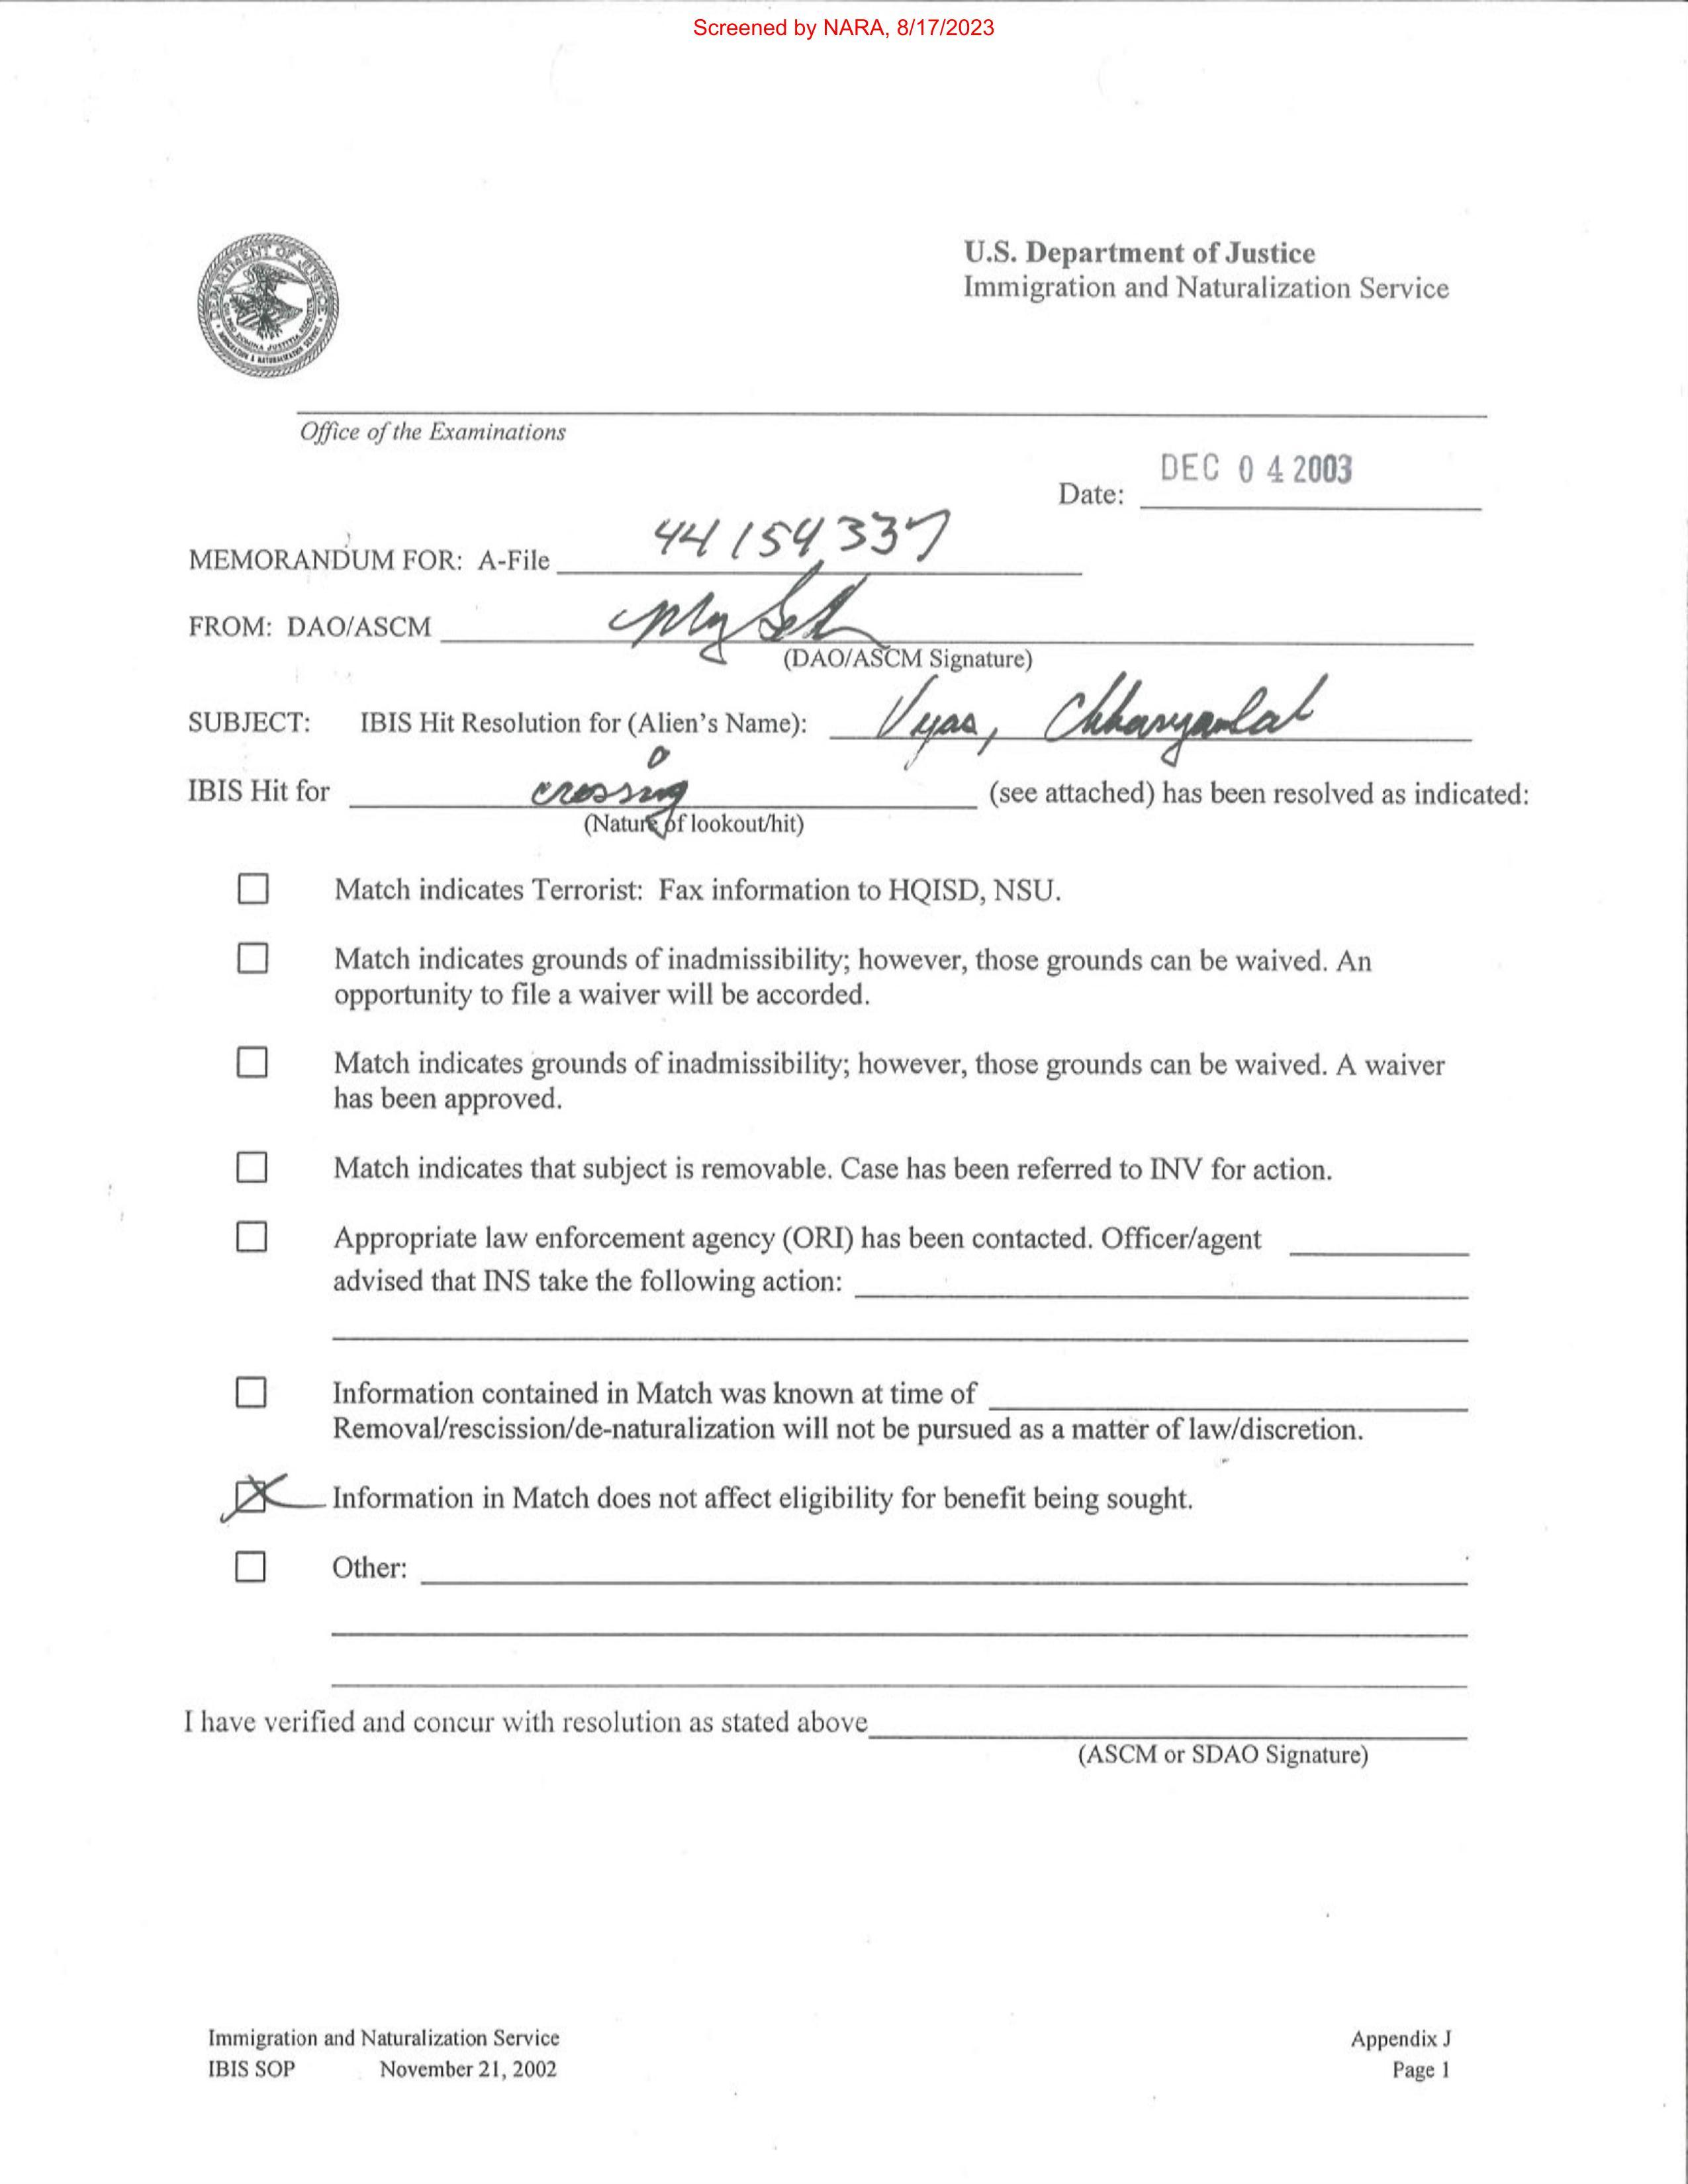 Screened by NARA, 8/17/2023
U.S. Department of Justice
Immigration and Naturalization Service
Office of the Examinations
DEC 04 2003
Date:
MEMORANDUM FOR: A-File 44 154 337
FROM: DAO/ASCM
(DAO/ASCM Signature)
SUBJECT: IBIS Hit Resolution for (Alien's Name): Vyas, Chhanganlal
IBIS Hit for crossing (see attached) has been resolved as indicated:
(Nature of lookout/hit)
Match indicates Terrorist: Fax information to HQISD, NSU.
Match indicates grounds of inadmissibility; however, those grounds can be waived. An
opportunity to file a waiver will be accorded.
Match indicates grounds of inadmissibility; however, those grounds can be waived. A waiver
has been approved.
Match indicates that subject is removable. Case has been referred to INV for action.
Appropriate law enforcement agency (ORI) has been contacted. Officer/agent
advised that INS take the following action:
Information contained in Match was known at time of
Removal/rescission/de-naturalization will not be pursued as a matter of law/discretion.
Information in Match does not affect eligibility for benefit being sought.
Other:
I have verified and concur with resolution as stated above
(ASCM or SDAO Signature)
Immigration and Naturalization Service
IBIS SOP November 21, 2002
Appendix J
Page 1